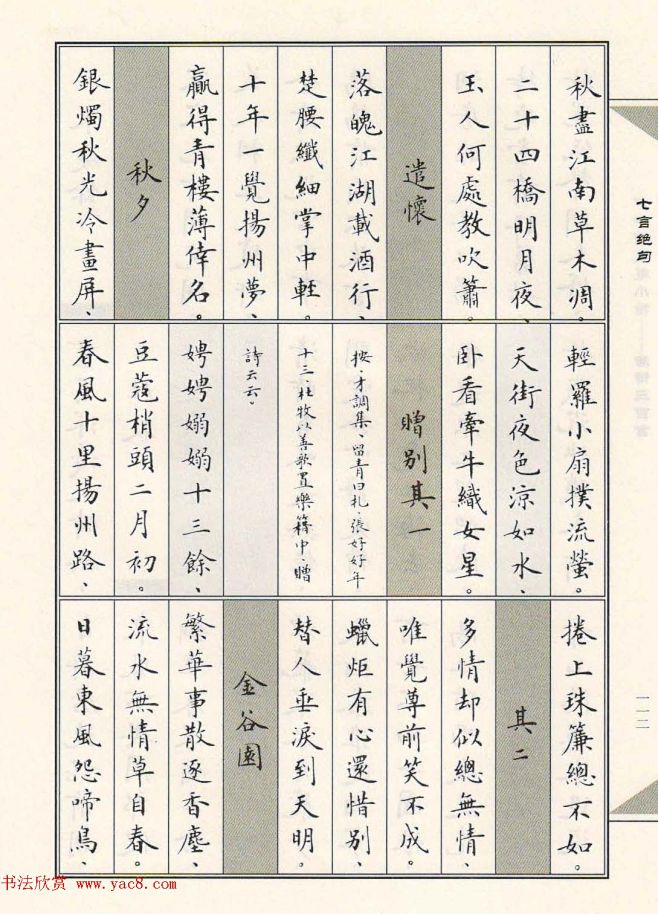 秋盡江南草木凋。
二十四橋明月夜、
玉人何處教吹簫。
遣懷
落魄江湖載酒行、
楚腰纖細掌中輕。
十年一覺揚州夢、
贏得青樓薄倖名。
秋夕
銀燭秋光冷畫屏、
輕羅小扇撲流螢。
天街夜色涼如水、
卧看牽牛織女星。
贈別其一
按、才調集、留青日札、張好好年
十三、杜牧以善歌置樂籍中、贈
詩云云。
娉娉嫋嫋十三餘、
豆蔻梢頭二月初。
春風十里揚州路、
捲上珠簾總不如。
其二
多情却似總無情、
唯覺尊前笑不成。
蠟炬有心還惜別、
替人垂淚到天明。
金谷園
繁華事散逐香塵、
流水無情草自春。
日暮東風怨啼鳥、
七言绝句
一一二
书法欣赏 www.yac8.com